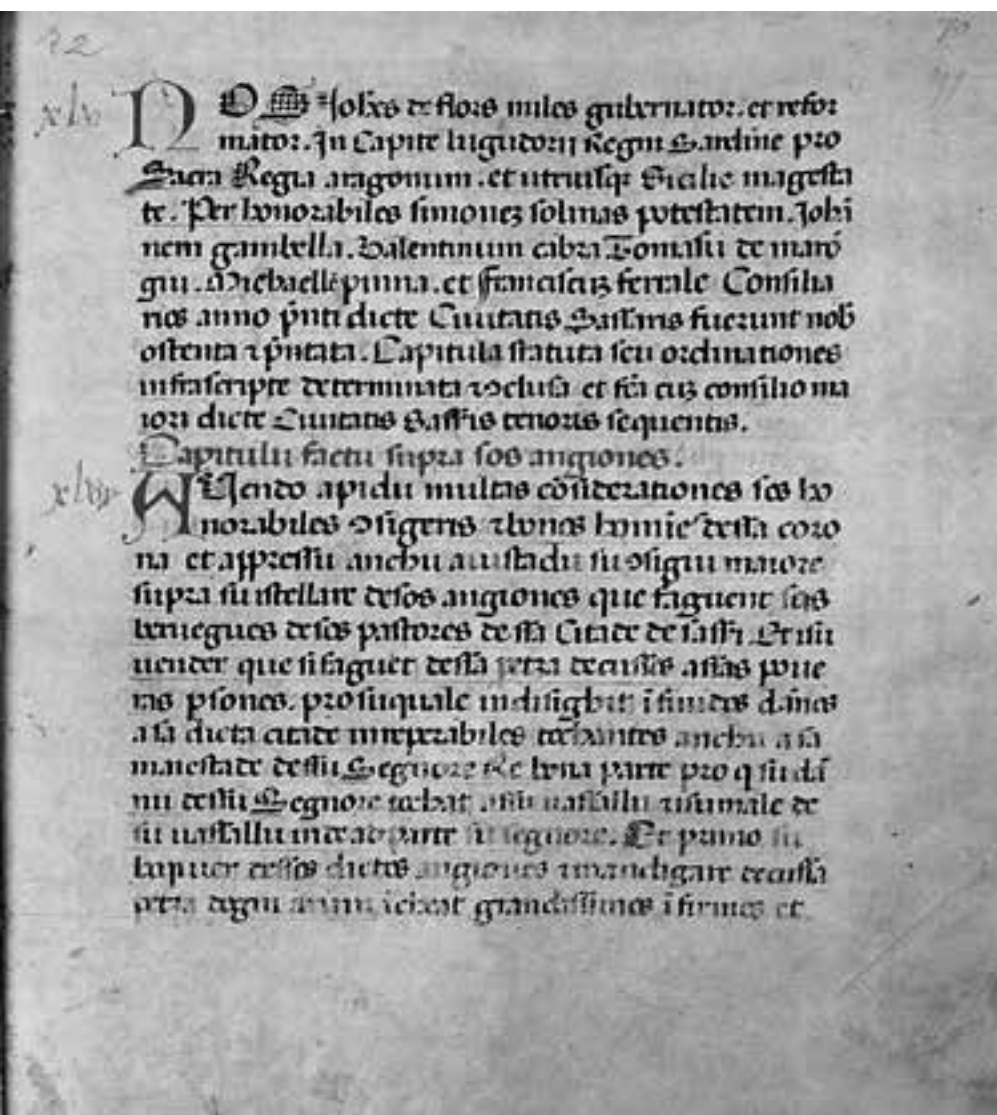 32
xlv NOS Johes de flors miles gubernator. et refor
mator. In Capite lugudorii Regni Sardinie pro
Sacra Regia aragonum. et utriusq Sicilie magesta
te. Per honorabiles simonez solinas potestatem. Johi
nem gambella. Valentinum cabra Tomasu de maro
giu. Michaelle pinna. et franciscuz ferrale Consilia
rios anno pñti dicte Ciuitatis Sassaris fuerunt nob
ostenta ⁊ pñtata. Capitula statuta seu ordinationes
infrascripte determinata ⁊ ↄclusa et fca cuz consilio ma
iori dicte Ciuitatis Sassis tenoris sequentis.
Capitulu factu supra sos angiones.
Auendo apidu multas cōsiderationes sos ho
norabiles ↄsigeris ⁊ bonos homīes dessa coro
na et appressu anchu auistadu su ↄsigiu maiore
supra su istellare desos angiones que faguent sos
beruegues desos pastores dessa Citade de sassi. Et issu
uender que si faguet dessa petra decussos assas poue
ras psones. pro suquale indisighit īfinidos dānos
a sa dicta citade irreperabiles tochantes anchu a sa
maiestade dessu Segnore Re bona parte pro q su dā
nu dessu Segnore tochat assu uassallu ⁊ su male de
su uassallu inde at parte su segnore. Et primo su
dessos dictos angiones ⁊ mandigare decussa
petra grandissimos īfirmos et